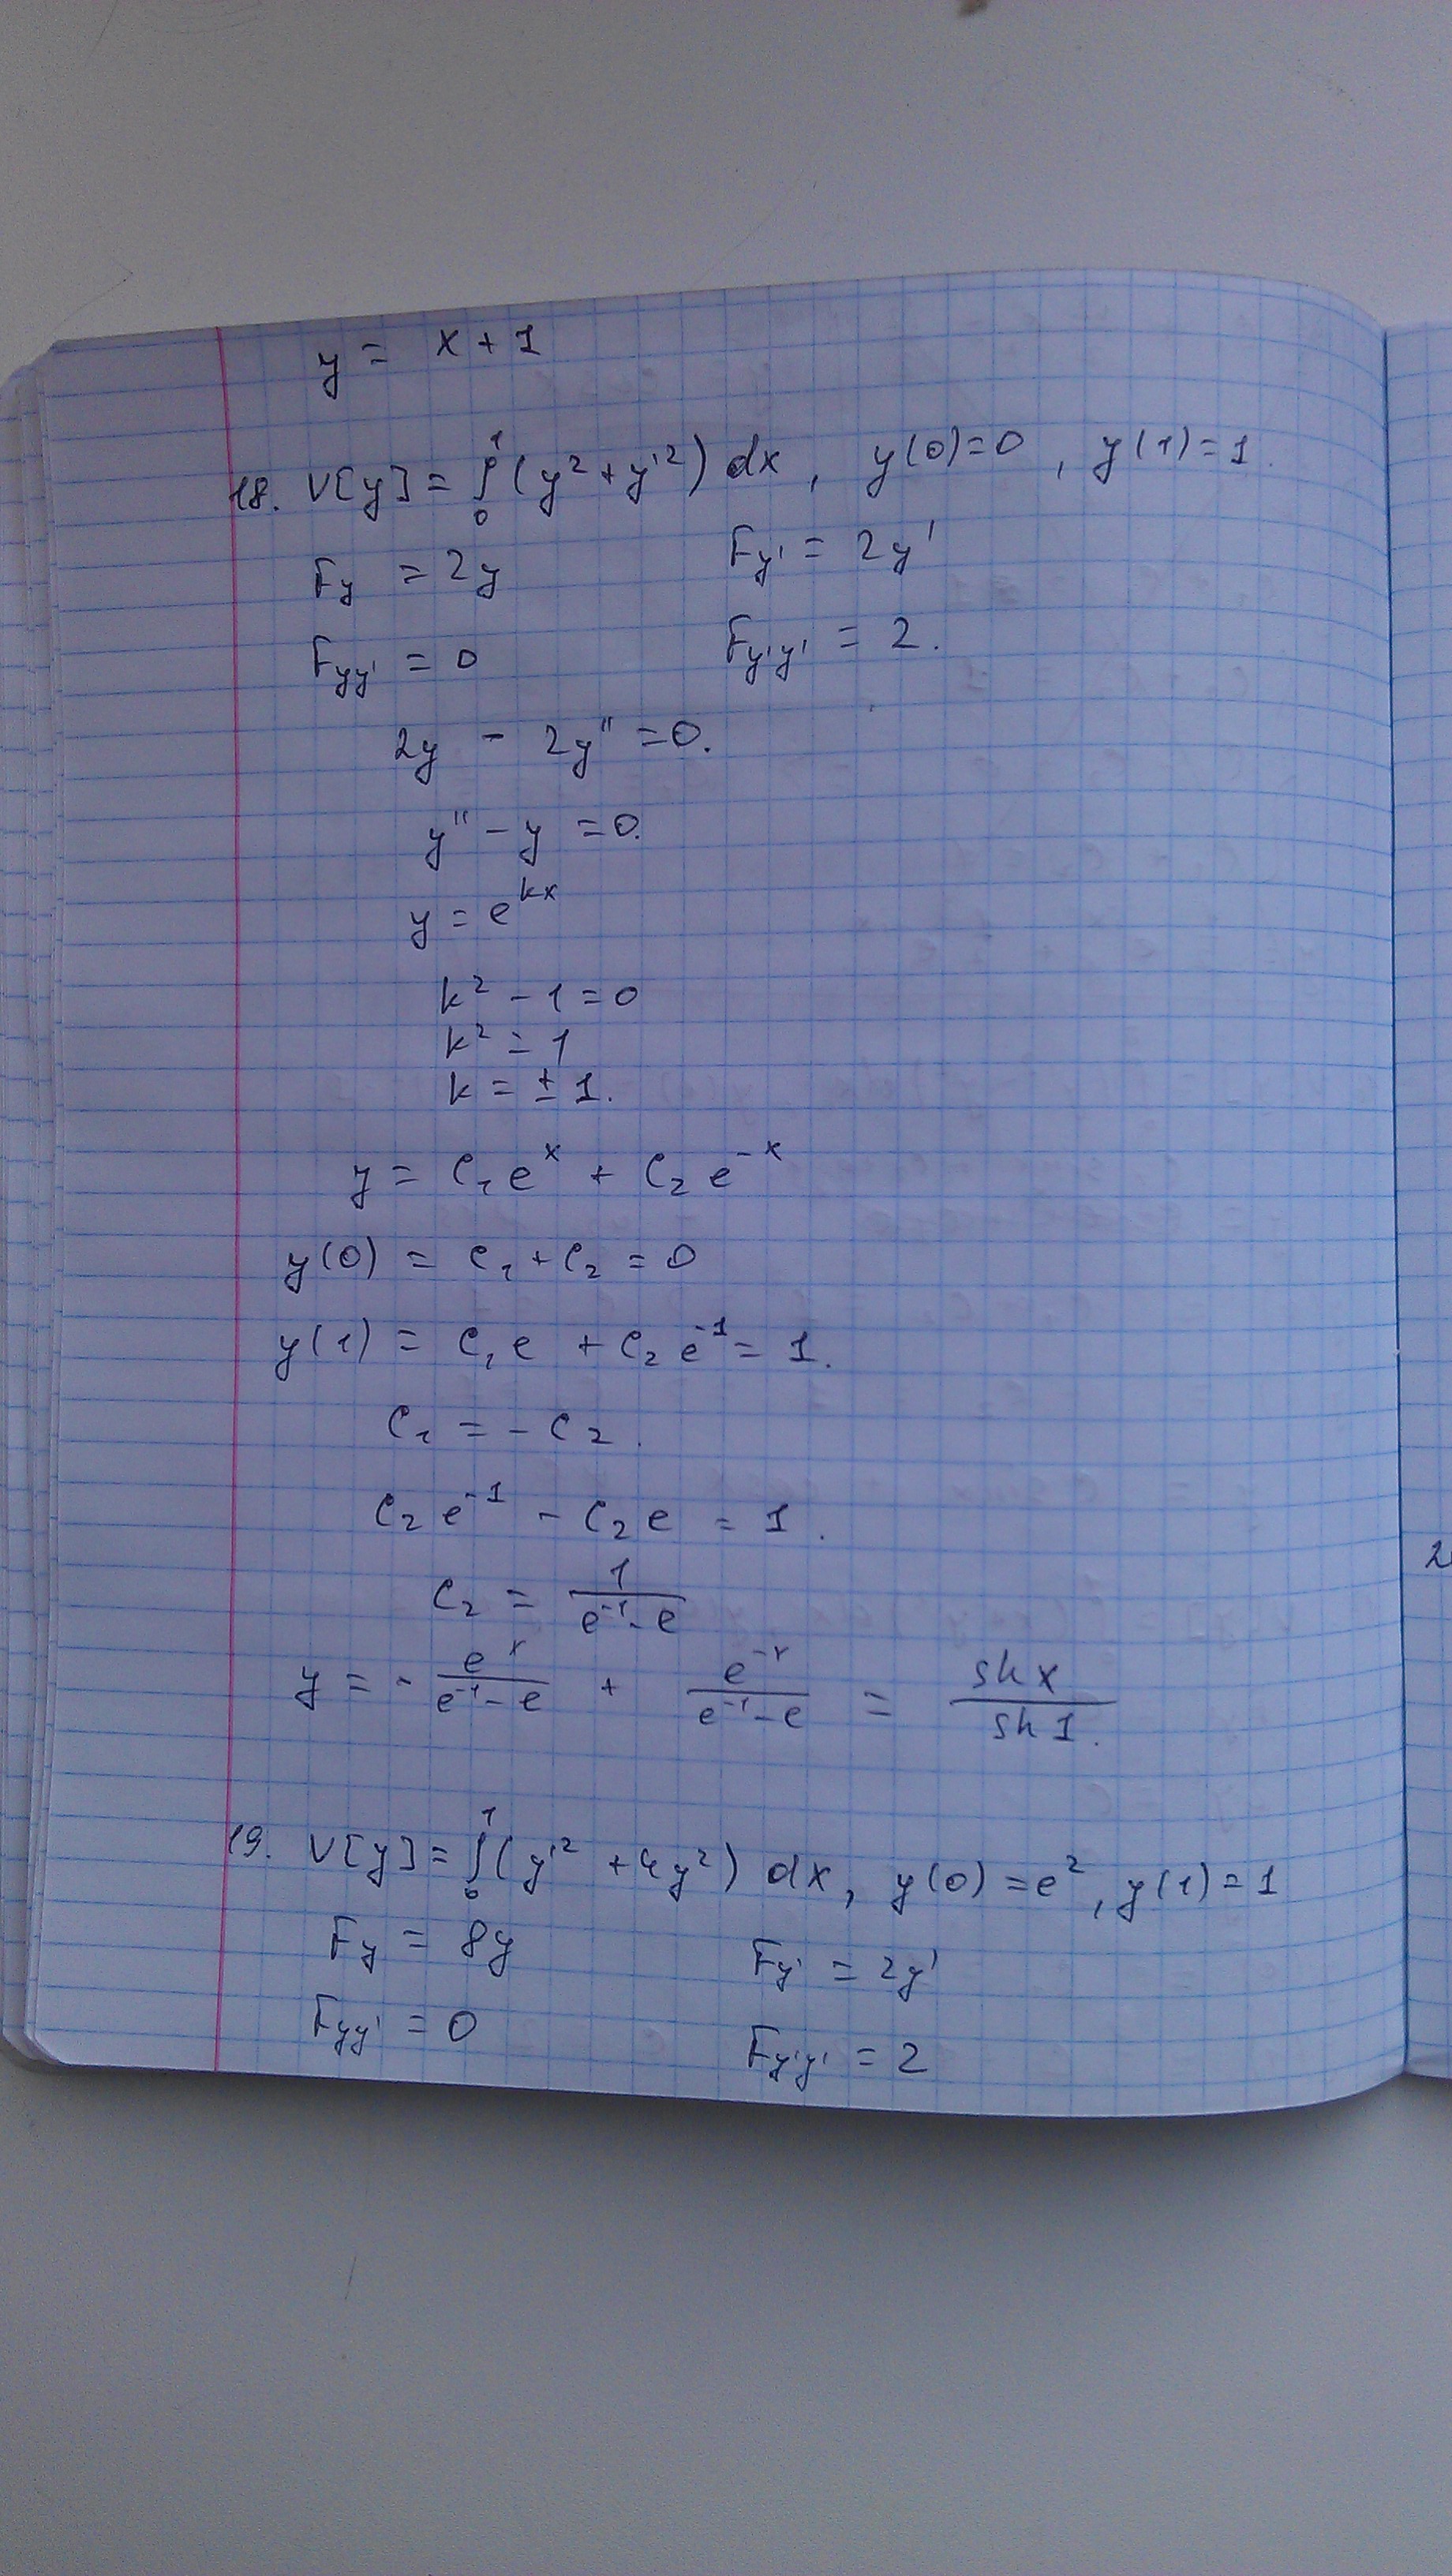 y = x + 1
18. V[y] = ∫₀¹ (y² + y'²) dx, y(0)=0, y(1)=1.
F_y = 2y F_y' = 2y'
F_yy' = 0 F_y'y' = 2.
2y - 2y'' = 0.
y'' - y = 0.
y = e^{kx}
k² - 1 = 0
k² = 1
k = ± 1.
y = C₁e^x + C₂e^{-x}
y(0) = C₁ + C₂ = 0
y(1) = C₁e + C₂e^{-1} = 1.
C₁ = - C₂.
C₂e^{-1} - C₂e = 1.
C₂ = 1/(e^{-1} - e)
y = - e^x/(e^{-1} - e) + e^{-x}/(e^{-1} - e) = sh x/sh 1.
2
19. V[y] = ∫₀¹ (y'² + 4y²) dx, y(0) = e², y(1) = 1
F_y = 8y F_y' = 2y'
F_yy' = 0 F_y'y' = 2